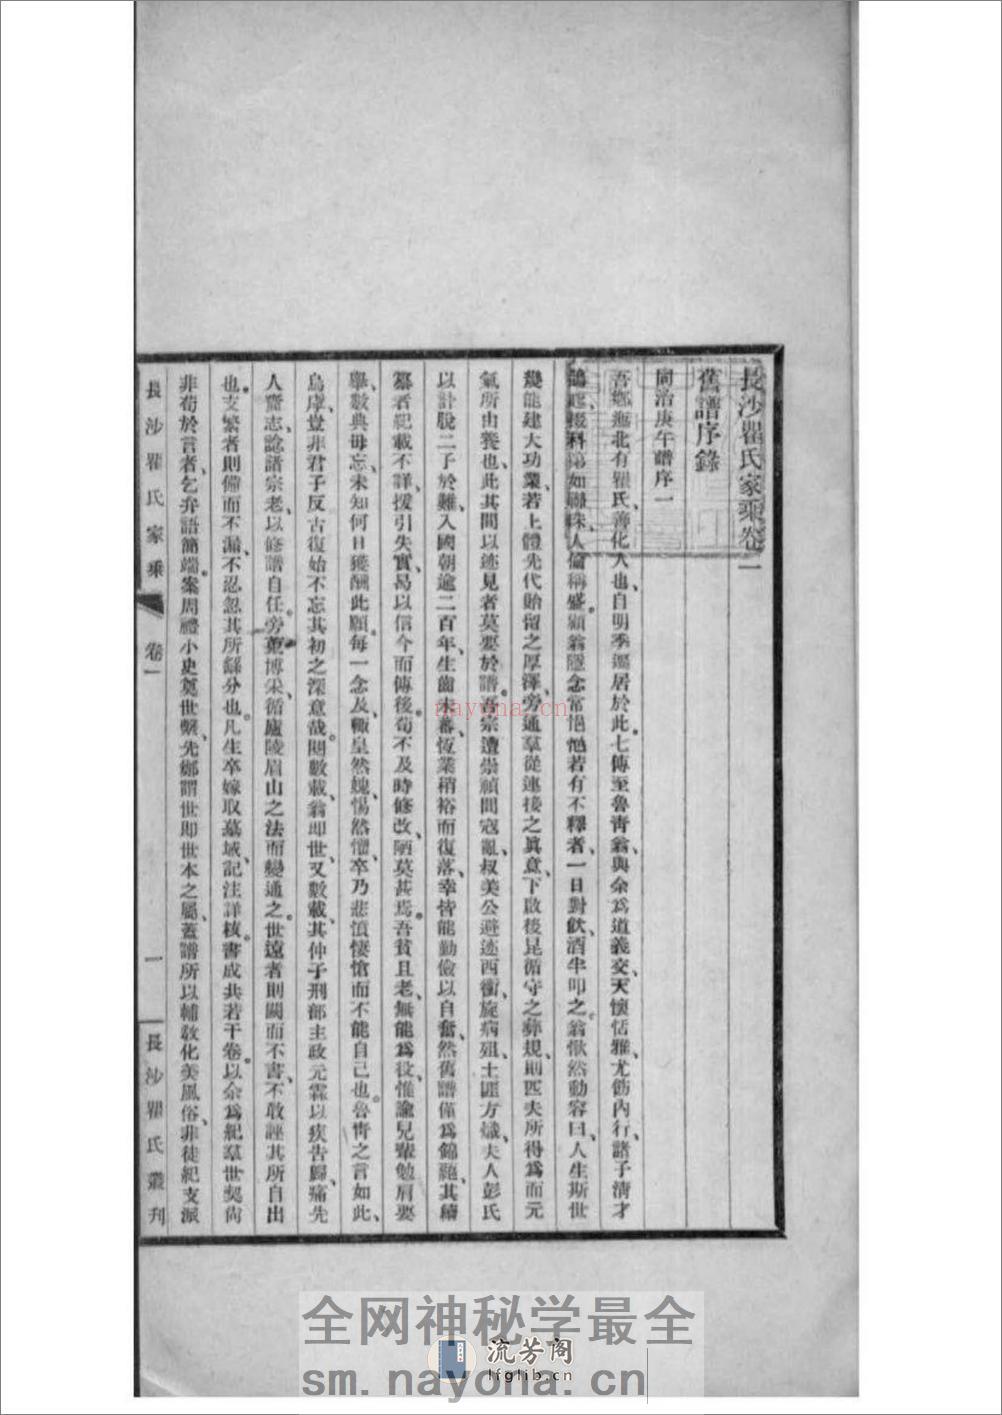 長沙瞿氏家乘卷一
舊譜序錄
同治庚午譜序一
吾鄉進北有瞿氏、善化人也、自明季遷居於此。七傳至魯青翁、與余爲道義交、天懷恬雅、尤飭内行、諸子淸才
踵起、掇科第如聯珠、人倫稱盛。顧翁隱念、常悒悒若有不釋者、一日對飲、酒半叩之、翁愀然動容曰、人生斯世
幾能建大功業、若上體先代貽留之厚澤、旁通羣從連接之眞意、下啟後昆循守之彝規、則匹夫所得爲、而元
氣所由養也、此其間以迹見者、莫要於譜。吾宗遭崇禎間寇亂、叔美公避迹西衝、旋病殂、土匪方熾、夫人彭氏
以計脫二子於難、入國朝逾二百年、生齒未蕃、恆業稍裕而復落、幸皆能勤儉以自奮、然舊譜僅爲錦褫、其續
纂者紀載不詳、援引失實、曷以信今而傳後、苟不及時修改、陋莫甚焉。吾貧且老、無能爲役、惟諭兒輩勉肩要
舉、數典毋忘、未知何日獲酬此願。每一念及、輒皇然媿、惕然懼、卒乃悲憤悽愴而不能自已也。魯靑之言如此、
烏虖、豈非君子反古復始不忘其初之深意哉。閱數載、翁卽世、又數載、其仲子刑部主政元霖以疾告歸、痛先
人齎志、諗諸宗老、以修譜自任。旁蒐博采、循廬陵眉山之法而變通之。世遠者則闕而不書、不敢誣其所自出
也。支繁者則備而不漏、不忍忽其所繇分也。凡生卒嫁取墓域、記注詳核。書成共若干卷。以余爲紀羣世契、尙
非苟於言者、乞弁語簡端。案周禮小史奠世繫、先鄭謂世卽世本之屬、蓋譜所以輔敎化美風俗、非徒紀支派
長沙瞿氏家乘 卷一 一 長沙瞿氏叢刊
nayona.cn
全网神秘学最全
流芳阁
lfglib.cn
sm.nayona.cn